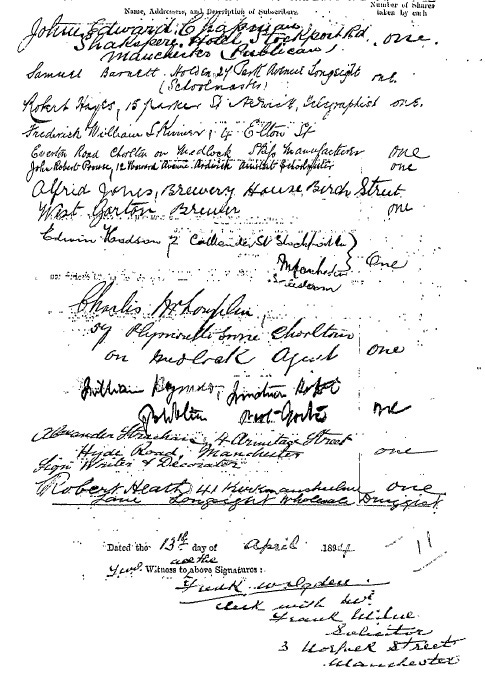 Name, Addresses, and Description of Subscribers.
Number of Shares
taken by each
John Edward Chapman
Shakspere Hotel Stockport Rd one.
Manchester (Publican)
Samuel Barnett Holden 27 Park Avenue Longsight one.
(Schoolmaster)
Robert Hayes, 15 Parker St Ardwick, one.
Frederick William Skinner, 4 Elton St
Everton Road Chorlton on Medlock Manufacturer one
John Robert Prowse, 12 Howard Avenue Ardwick Assistant Schoolmaster one
Alfred Jones, Brewery House Birch Street
West Gorton Brewer one
Edwin Hoadson 2 St
Manchester One
Charles
59 Plymouth Grove Chorlton
on Medlock Agent one
William
West Gorton one
Alexander Strachan, 4 Armitage Street
Hyde Road, Manchester one
Sign Writer & Decorator
Robert Heath 41 Kirkmanshulme one
Lane Longsight Wholesale Druggist
Dated the 13th day of April 1894
11
Witness to above Signatures:
Frank W Ogden
Clerk with
Frank Milne
Solicitor
3 Norfolk Street
Manchester